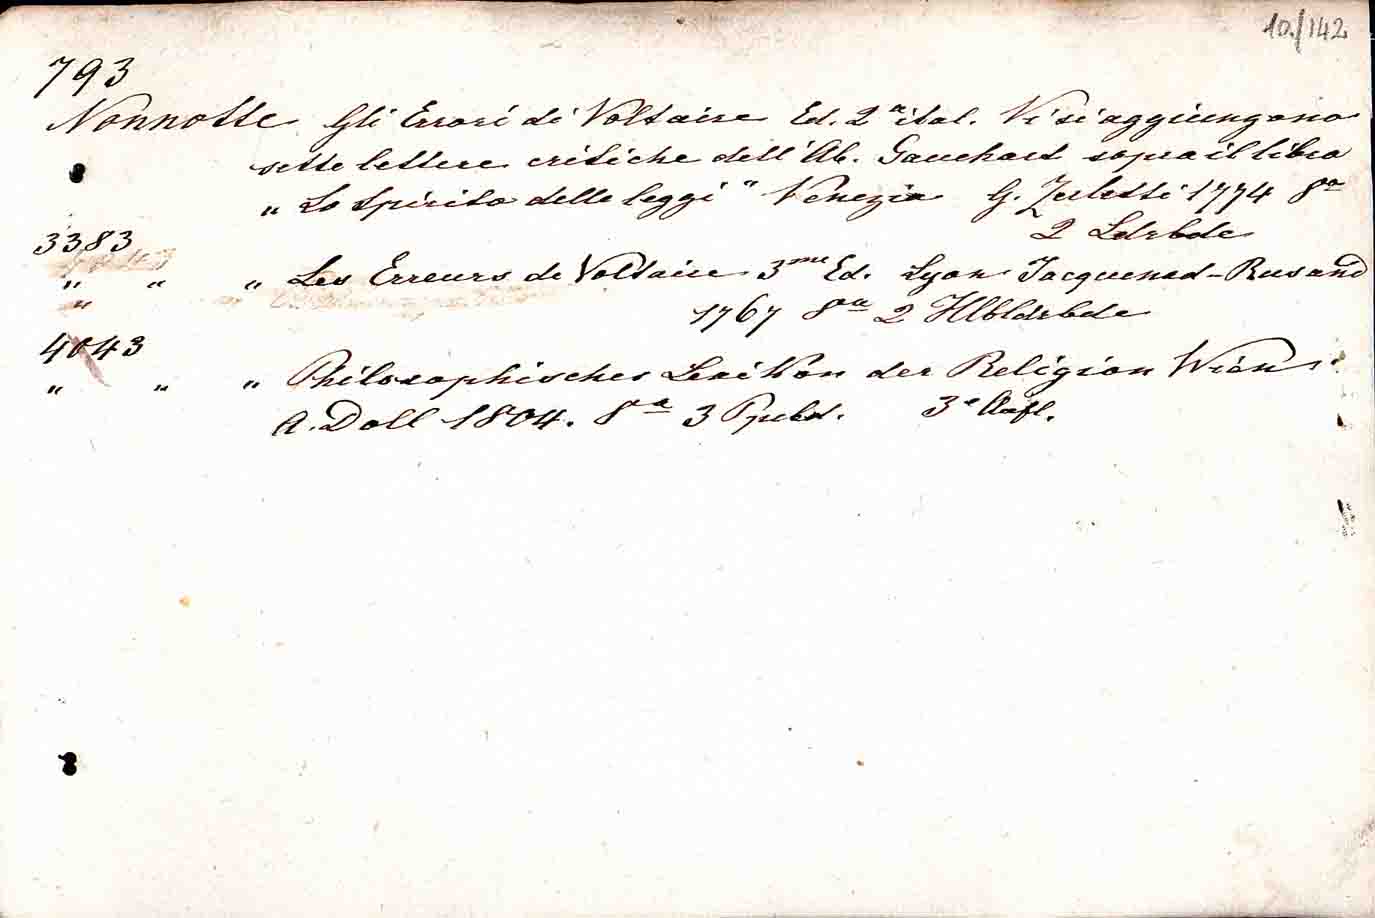 10./142
793
Nonnotte Gli Errori di Voltaire Ed. 2a ital. Vi si aggiungono
sette lettere critiche dell'Ab. Gauchard sopra il libro
„ Lo Spirito delle leggi " Venezia G. Zuletti 1774 8a
2 Ldrbde
3383
„ „ „ Les Erreurs de Voltaire 3me Ed. Lyon Jacquenod-Rusand
„ 1767 8a 2 Hlbldrbde
4043
„ „ „ Philosophisches Lexikon der Religion Wien
A. Doll 1804. 8a 3 Ppbd. 3e Aufl.